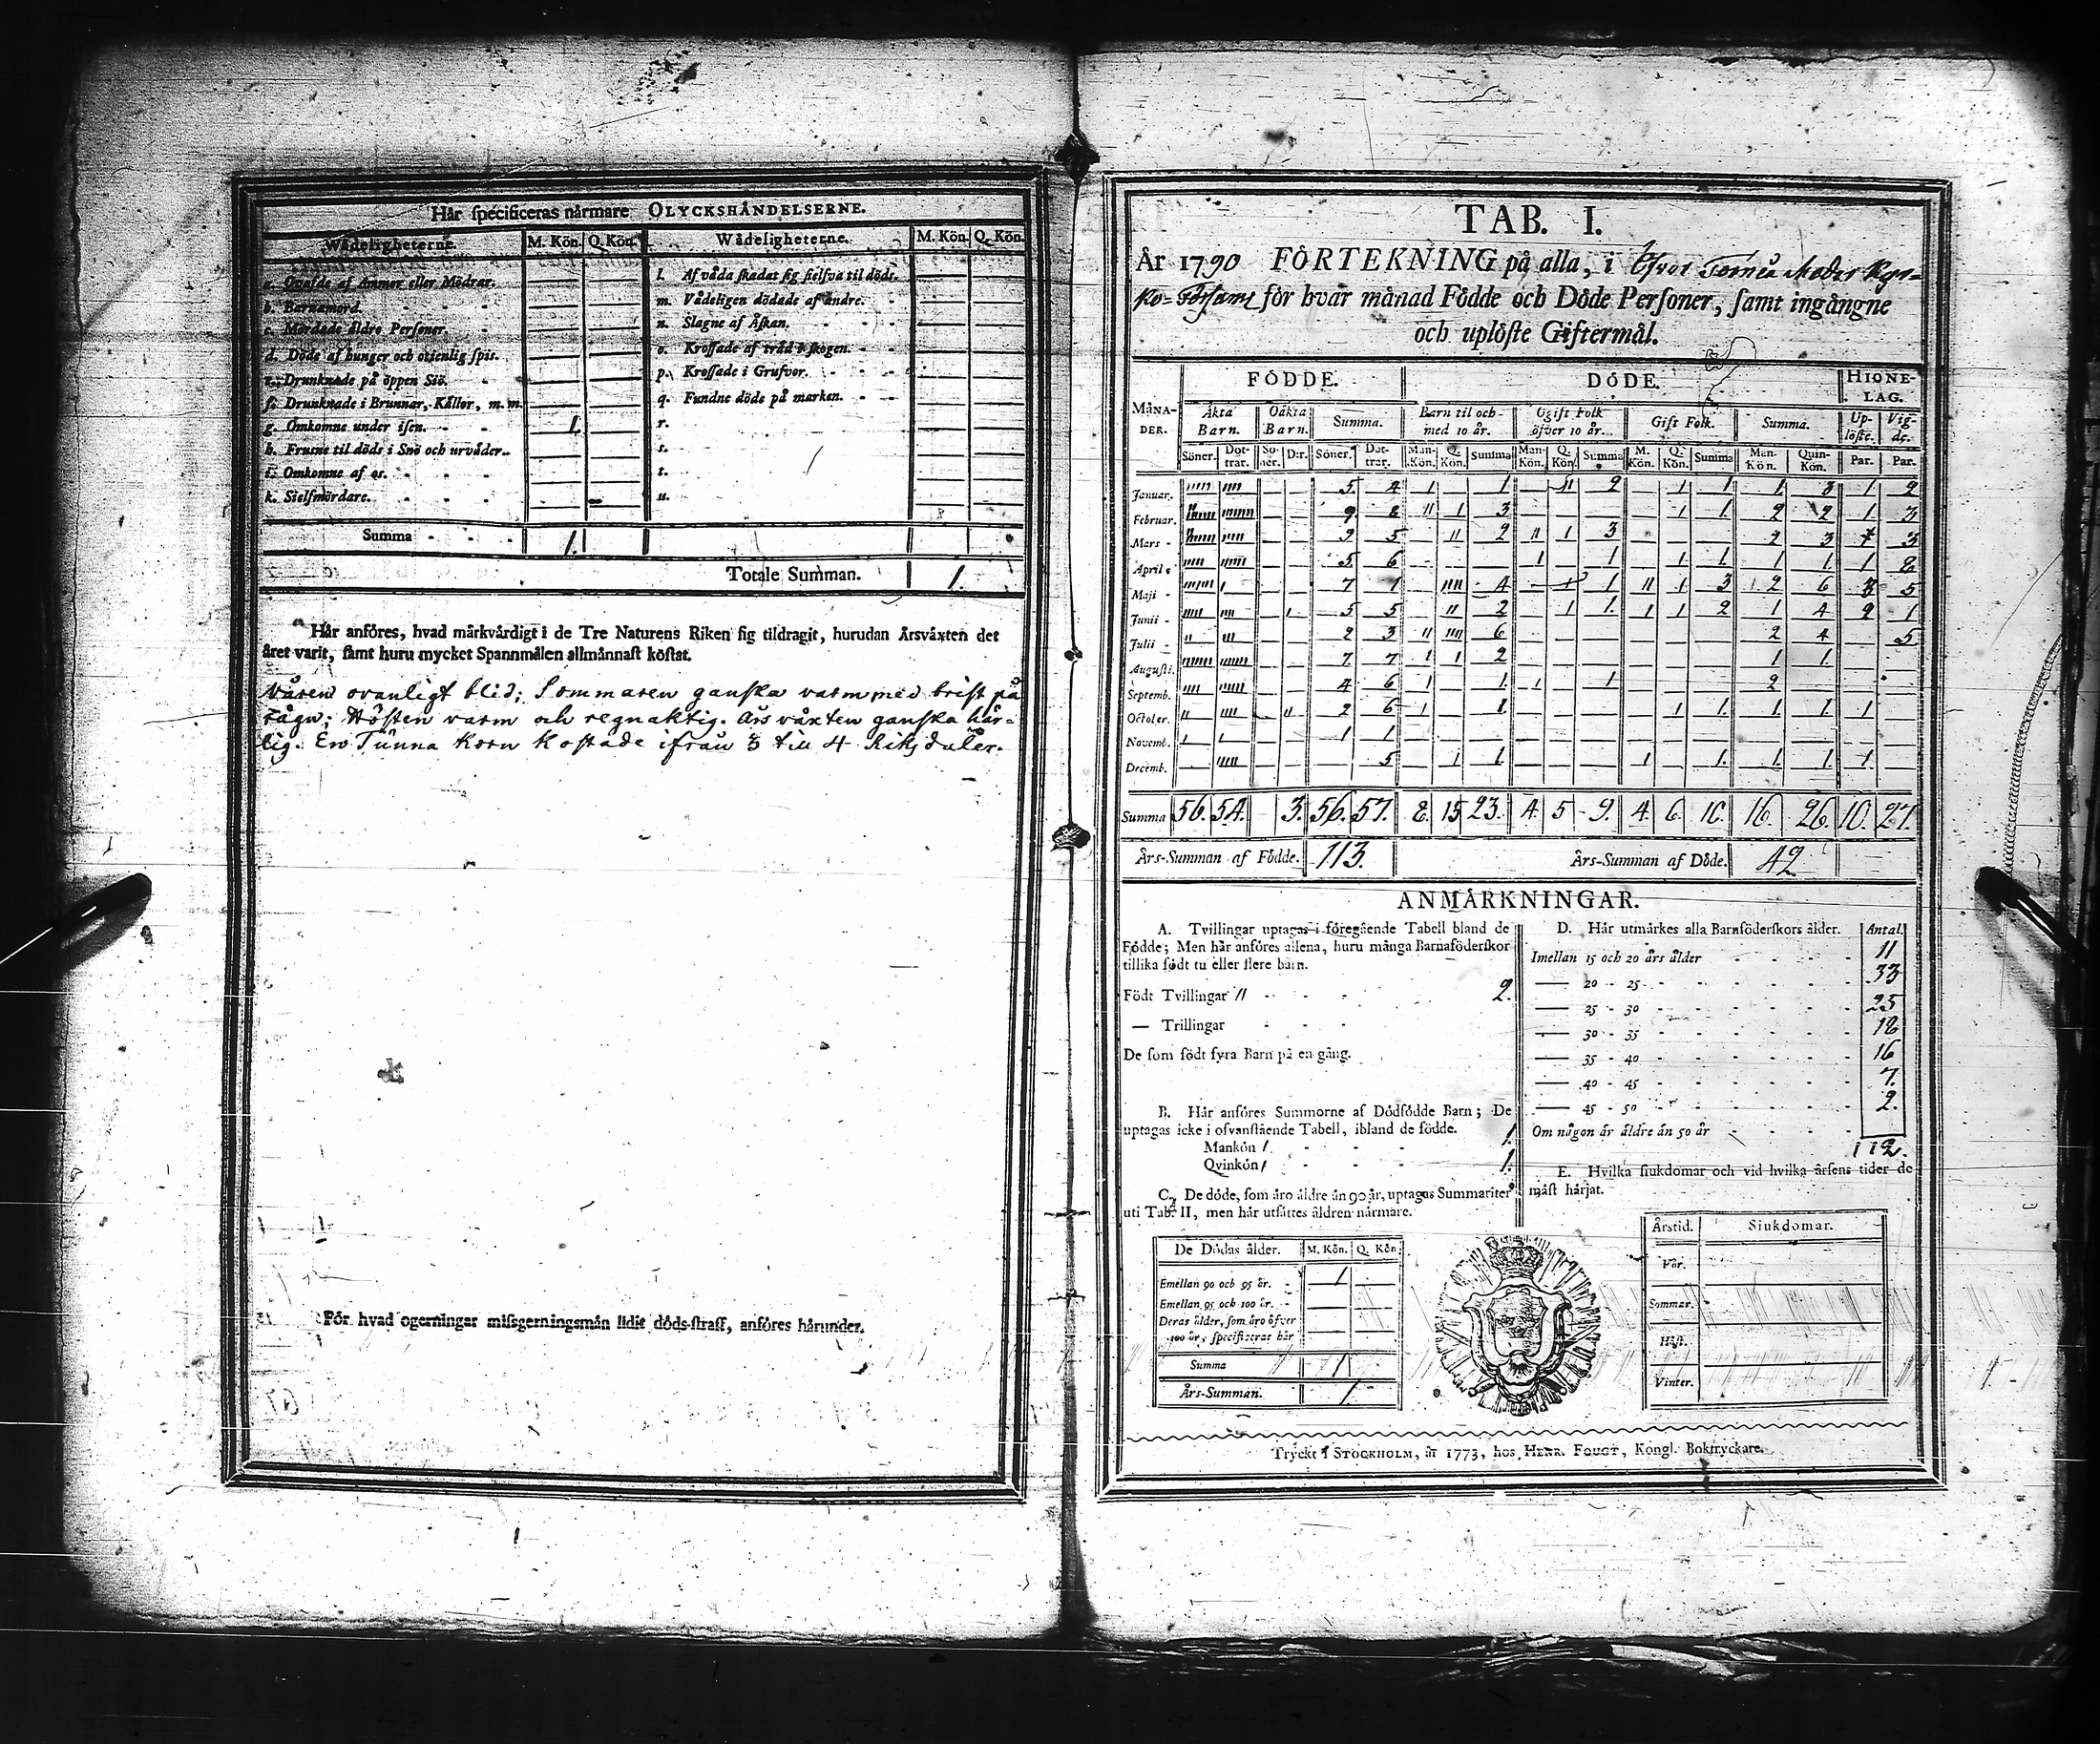 Här specificeras närmare OLYCKSHÄNDELSERNE.
Wådeligheterne. M. Kön. Q. Kön. Wådeligheterne. M. Kön. Q. Kön.
a. Qvafde af Ammor eller Mödrar. — — l. Af våda skadat sig sielfva til döds. — —
b. Barnamord. — — m. Vådeligen dödade af andre. — —
c. Mördade äldre Personer. — — n. Slagne af Åskan. — —
d. Döde af hunger och otienlig spis. — — o. Krossade af träd i skogen. — —
e. Drunknade på öppen Siö. — — p. Krossade i Grufvor. — —
f. Drunknade i Brunnar, Källor, m. m. — — q. Fundne döde på marken. — —
g. Omkomne under isen. 1. — r. — —
h. Frusne til döds i Snö och urväder. — — s. — —
i. Omkomne af os. — — t. — —
k. Sielfmördare. — — u. — —
Summa 1.
Totale Summan. 1.
Här anföres, hvad märkvärdigt i de Tre Naturens Riken sig tildragit, hurudan Årsväxten det
året varit, samt huru mycket Spannmålen allmännast kostat.
Våren ovanligt blid; Sommaren ganska varm med brist på
rägn; Hösten varm och regnaktig. Årsväxten ganska här-
lig. En Tunna Korn Kostade ifrån 3 till 4 Riksdaler.
För hvad ogerningar missgerningsmän lidit döds-straff, anföres härunder.
TAB. I.
År 1790 FÖRTEKNING på alla, i Öfver Torneå Moder Kyr-
ko-Församl för hvar månad Födde och Döde Personer, samt ingångne
och uplöste Giftermål.
MÅNA-DER. FÖDDE. DÖDE. HIONE-LAG.
Äkta Barn. Oäkta Barn. Summa. Barn til och med 10 år. Ogift Folk öfver 10 år. Gift Folk. Summa. Up-löste. Vig-de.
Söner. Dot-trar. Sö-ner. D:r. Söner. Dot-trar. Man-Kön. Q. Kön. Summa Man-Kön. Q. Kön. Summa M. Kön. Q. Kön. Summa Man-Kön. Quin-Kön. Par. Par.
Januar. 5. 4 1 — 1 — 11 2 — 1 1 1 3 1 2
Februar. 9 8 11 1 3 — — — — 1 1. 2 2 1 3
Mars 9 5 — 11 2 11 1 3 — — — 2 3 3
April 5 6 — — — 1 — 1 — 1 1 1 1 1 8
Maji 7 1 — 1111 4 — 1 1 11 1 3 2 6 3 5
Junii 5 5 — 11 2 — 1 1. 1 1 2 1 4 2 1
Julii 2 3 11 1111 6 — — — — — — 2 4 — 5
Augusti. 7 7 1 1 2 — — — — — — 1 1. — —
Septemb. 4 6 1 — 1 1 — 1 — — — 2 — — —
October. 2 6 1 — 1. — — — — 1 1. 1. 1 1 —
Novemb. 1 1 1 1 — — — — — — — — — — — — —
Decemb. 5 — 1 1. — — — 1 — 1. 1. 1. 1. —
Summa 56. 54. 3. 56. 57. 8. 15 23. 4. 5 9. 4. 6. 10. 16. 26. 10. 27.
Års-Summan af Födde. 113. Års-Summan af Döde. 42
ANMÄRKNINGAR.
A. Tvillingar uptagas i föregående Tabell bland de
Födde; Men här anföres allena, huru många Barnaföderskor
tillika födt tu eller flere barn.
Födt Tvillingar 11 2.
— Trillingar
De som födt fyra Barn på en gång.
B. Här anföres Summorne af Dödfödde Barn; De
uptagas icke i ofvanstående Tabell, ibland de födde.
Mankön 1. 1.
Qvinkön 1 1.
C. De döde, som äro äldre än 90 år, uptagas Summariter
uti Tab. II, men här utsättes åldren närmare.
De Dödas ålder. M. Kön. Q. Kön
Emellan 90 och 95 år. 1 —
Emellan 95 och 100 år. — —
Deras ålder, som äro öfver
100 år, specificeras här — —
Summa 1
Års-Summan. 1.
D. Här utmärkes alla Barnföderskors ålder. Antal.
Imellan 15 och 20 års ålder 11
— 20 - 25 33
— 25 - 30 25
— 30 - 35 18
— 35 - 40 16
— 40 - 45 7.
— 45 - 50 2.
Om någon är äldre än 50 år
112.
E. Hvilka siukdomar och vid hvilka årsens tider de
mäst härjat.
Årstid. Siukdomar.
Vår.
Sommar.
Höst.
Vinter.
Tryckt i STOCKHOLM, år 1773, hos HERR FOUGT, Kongl. Boktryckare.